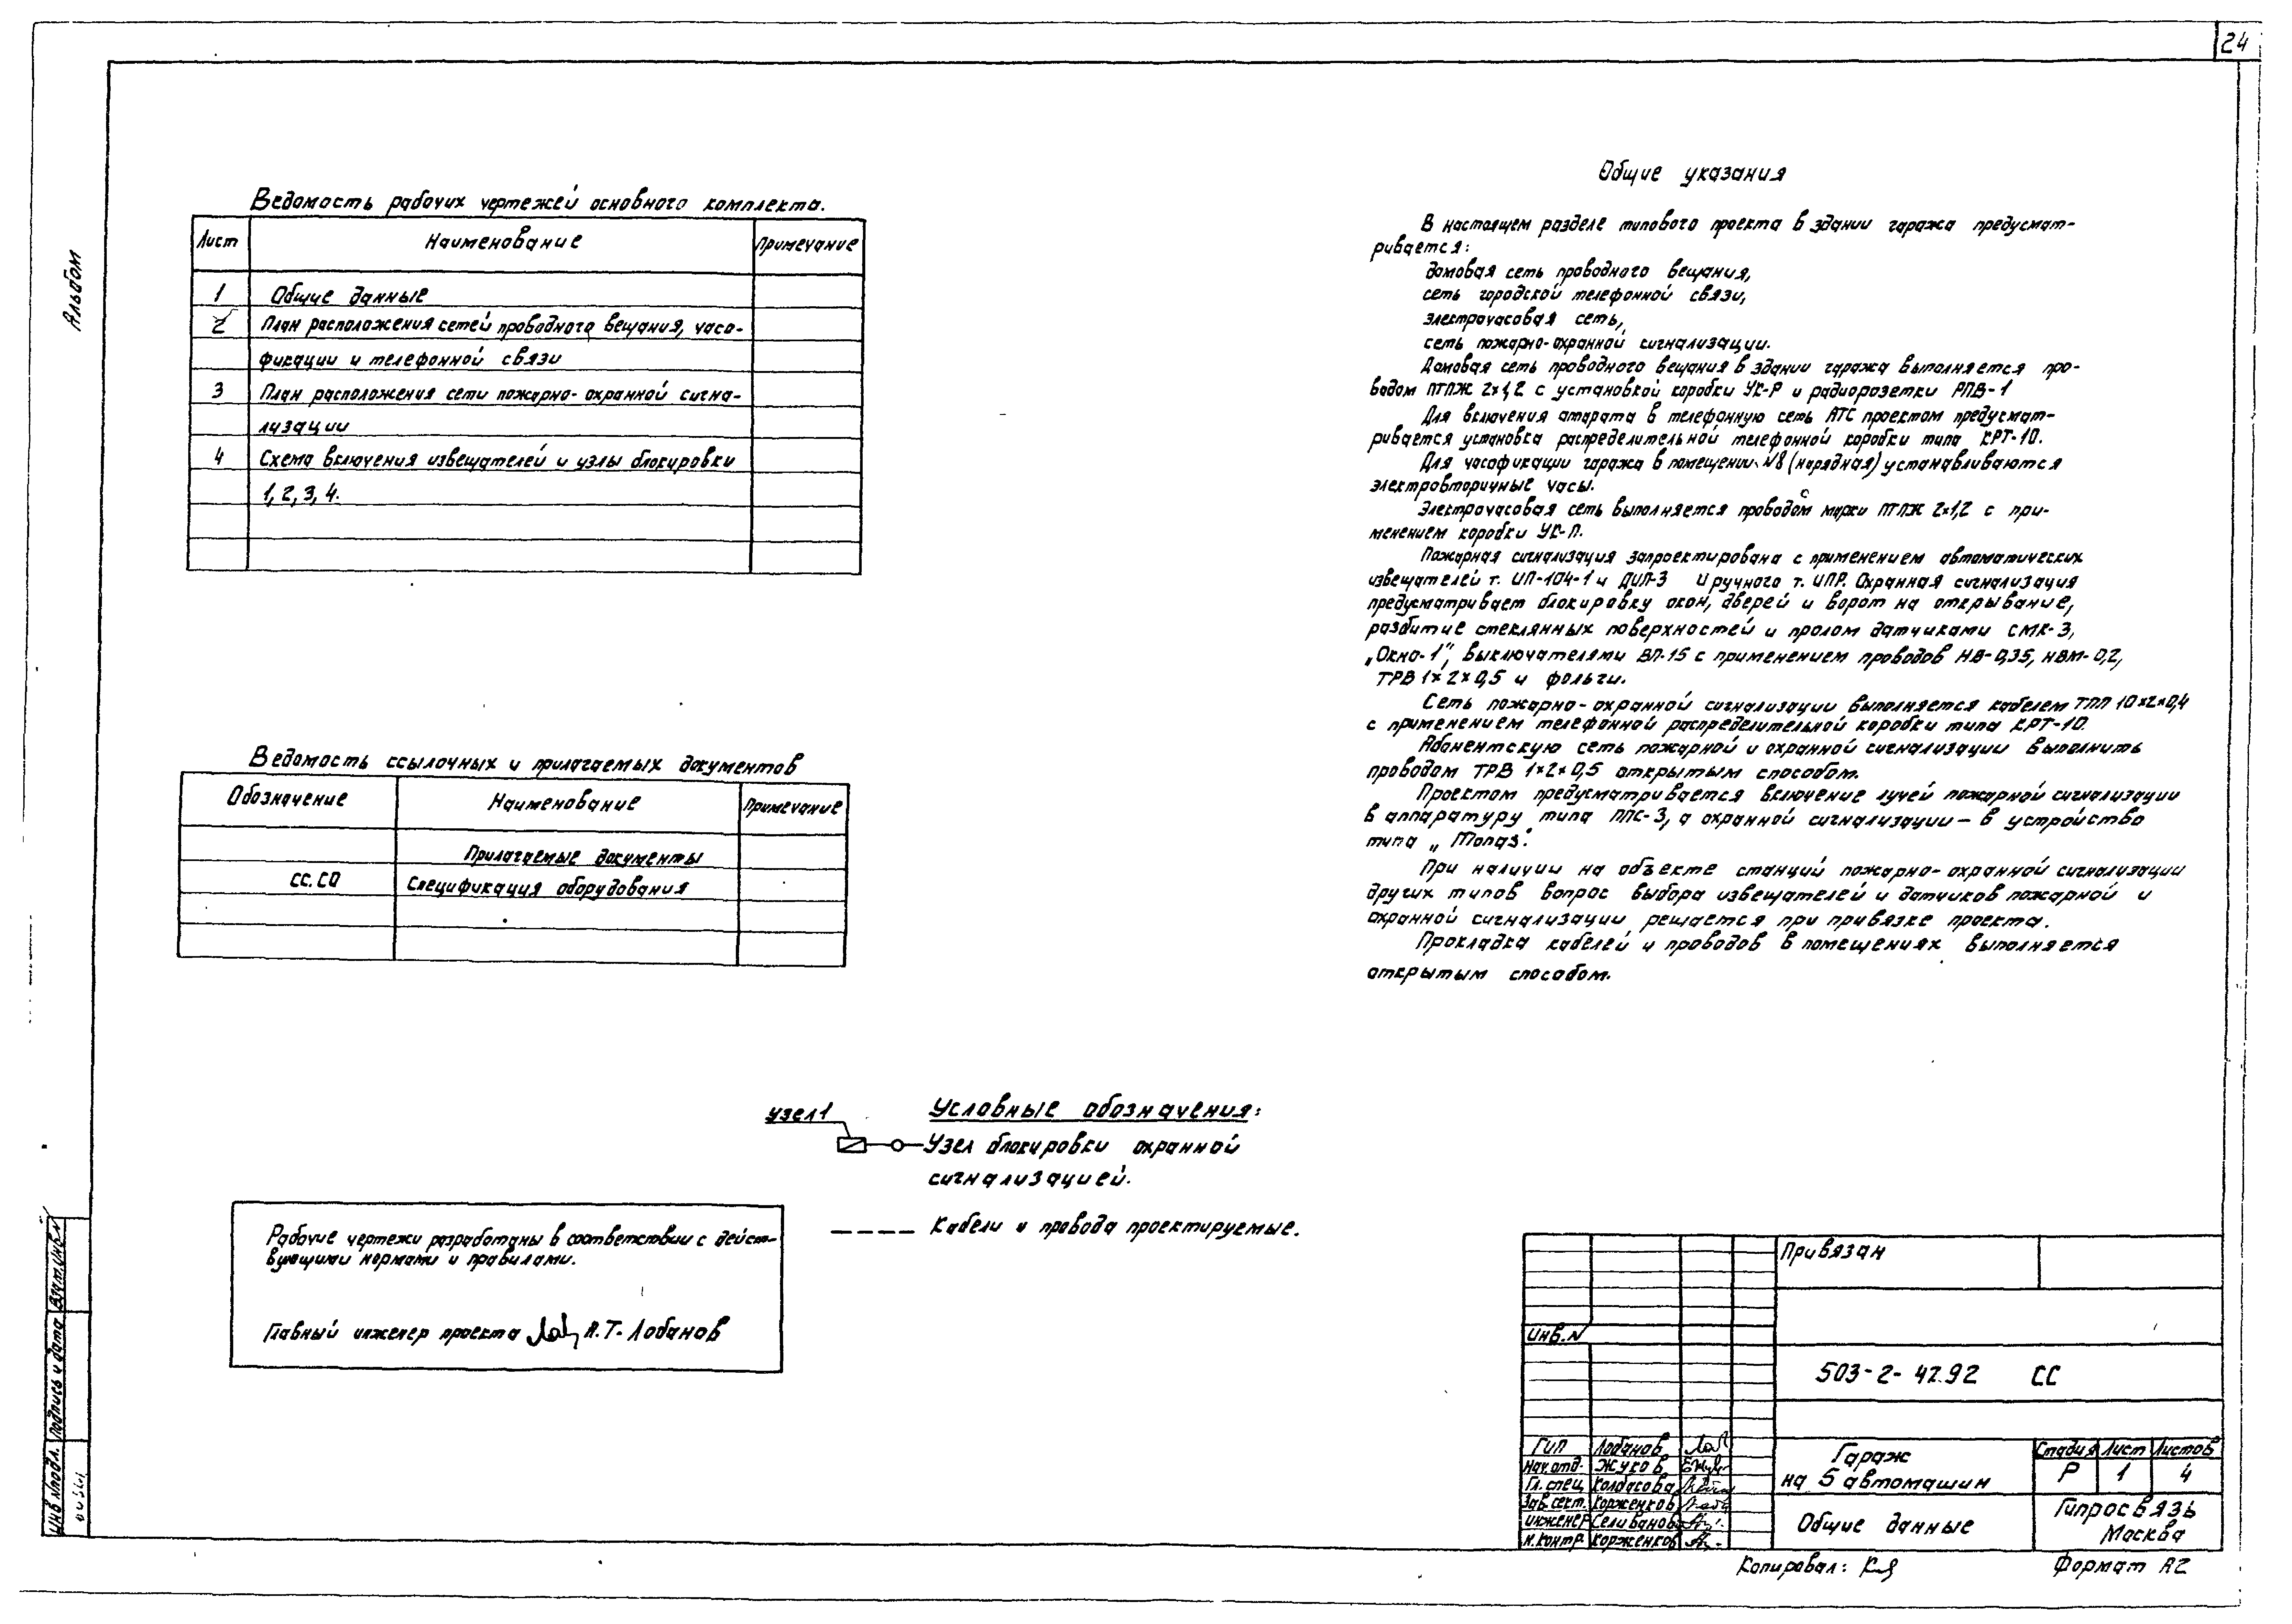 24
Альбом
Ведомость рабочих чертежей основного комплекта.
Лист Наименование Примечание
1 Общие данные
2 План расположения сетей проводного вещания, часо-
фикации и телефонной связи
3 План расположения сети пожарно-охранной сигна-
лизации
4 Схема включения извещателей и узлы блокировки
1, 2, 3, 4.
Ведомость ссылочных и прилагаемых документов
Обозначение Наименование Примечание
Прилагаемые документы
СС.СО Спецификация оборудования
Общие указания
В настоящем разделе типового проекта в здании гаража предусмат-
ривается:
домовая сеть проводного вещания,
сеть городской телефонной связи,
электрочасовая сеть,
сеть пожарно-охранной сигнализации.
Домовая сеть проводного вещания в здании гаража выполняется про-
водом ПТПЖ 2×1,2 с установкой коробки УК-Р и радиорозетки РПВ-1
Для включения аппарата в телефонную сеть АТС проектом предусмат-
ривается установка распределительной телефонной коробки типа КРТ-10.
Для часофикации гаража в помещении N8 (нарядная) устанавливаются
электровторичные часы.
Электрочасовая сеть выполняется проводом марки ПТПЖ 2×1,2 с при-
менением коробки УК-П.
Пожарная сигнализация запроектирована с применением автоматических
извещателей т. ИП-104-1 и ДИП-3 и ручного т. ИПР. Охранная сигнализация
предусматривает блокировку окон, дверей и ворот на открывание,
разбитие стеклянных поверхностей и пролом датчиками СМК-3,
„Окно-1", выключателями ВП-15 с применением проводов НВ-0,35, НВМ-0,2,
ТРВ 1×2×0,5 и фольги.
Сеть пожарно-охранной сигнализации выполняется кабелем ТПП 10×2×0,4
с применением телефонной распределительной коробки типа КРТ-10.
Абонентскую сеть пожарной и охранной сигнализации выполнить
проводом ТРВ 1×2×0,5 открытым способом.
Проектом предусматривается включение лучей пожарной сигнализации
в аппаратуру типа ППС-3, а охранной сигнализации — в устройство
типа „Топаз".
При наличии на объекте станций пожарно-охранной сигнализации
других типов вопрос выбора извещателей и датчиков пожарной и
охранной сигнализации решается при привязке проекта.
Прокладка кабелей и проводов в помещениях выполняется
открытым способом.
узел 1
Условные обозначения:
Узел блокировки охранной
сигнализацией.
Кабели и провода проектируемые.
Рабочие чертежи разработаны в соответствии с дейст-
вующими нормами и правилами.
Главный инженер проекта А.Т. Лобанов
Инв N подл. Подпись и дата Взам. инв. N
Привязан
Инв. N
503-2-47.92 СС
ГИП Лобанов
Нач. отд. Жуков
Гл. спец. Колбасова
Зав. сект. Корженков
инженер Селиванов
н. контр. Корженков
Гараж
на 5 автомашин
Стадия Лист Листов
Р 1 4
Общие данные
Гипросвязь
Москва
Копировал:
Формат А2